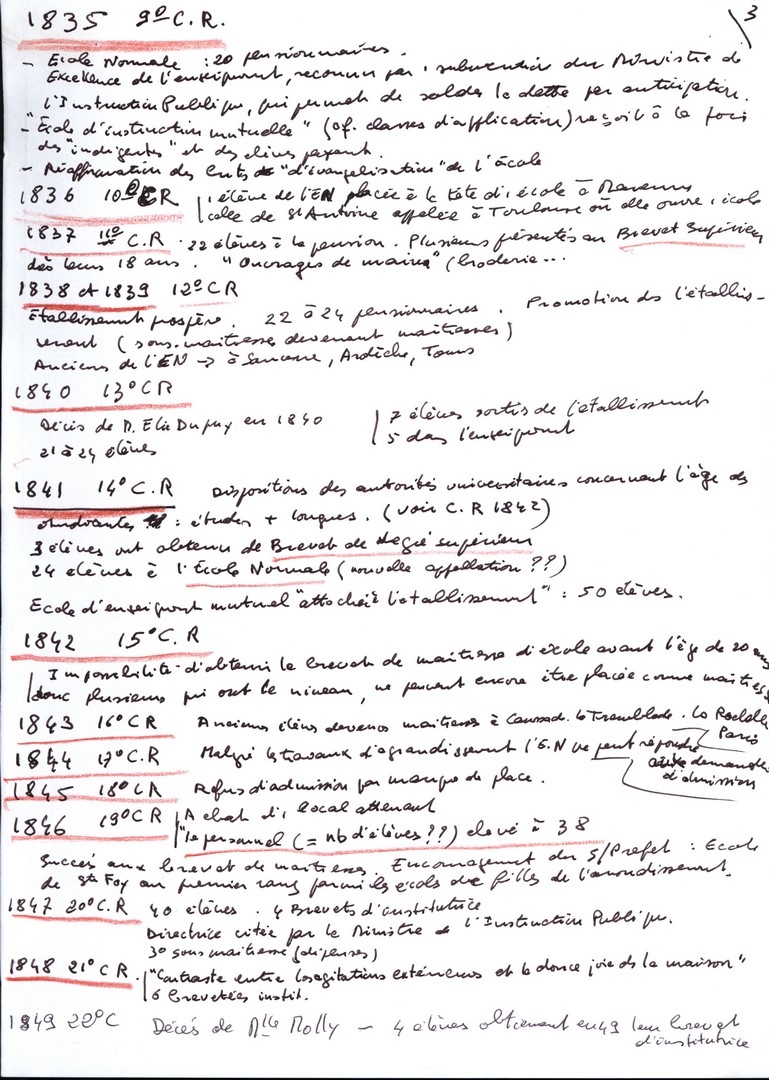 3
1835 9° C.R.
- Ecole Normale : 20 pensionnaires.
Excellence de l'enseignement, reconnue par 1 subvention du Ministre de
l'Instruction Publique, qui permet de solder la dette par anticipation.
- "Ecole d'instruction mutuelle" (cf. classes d'application) reçoit à la fois
des "indigentes" et des élèves payant.
- Réaffirmation des buts "d'évangélisation" de l'école
1836 10° CR
1 élève de l'EN placée à la tête d'1 école à
celle de St Antoine appelée à Toulouse où elle ouvre 1 école
1837 11° C.R. 22 élèves à la pension. Plusieurs présentés au Brevet Supérieur
dès leurs 18 ans. "Ouvrages de mains" (broderie...
1838 et 1839 12° CR
Etablissement prospère. 22 à 24 pensionnaires. Promotion ds l'établis-
sement (sous-maitresses devenant maitresses)
Anciens de l'EN -> à Sancerre, Ardèche, Tours
1840 13° CR
Décès de M. Elie Dupuy en 1840
21 à 24 élèves
7 élèves sortis de l'établissement
5 dans l'enseignement
1841 14° C.R Dispositions des autorités universitaires concernant l'âge des
étudiantes : études + longues. (voir C.R 1842)
3 élèves ont obtenu le Brevet de degré supérieur
24 élèves à l'Ecole Normale (nouvelle appellation ??)
Ecole d'enseignement mutuel "attachée à l'établissement" : 50 élèves.
1842 15° C.R
Impossibilité d'obtenir le brevet de maitresse d'école avant l'âge de 20 ans
donc plusieurs qui ont le niveau, ne peuvent encore être placée comme maitresse
1843 16° CR Anciens élèves devenus maitresses à Caussade. la Tremblade. La Rochelle
Paris
1844 17° C.R Malgré les travaux d'agrandissement l'E.N ne peut répondre
aux demandes
d'admission
1845 18° CR Refus d'admission par manque de place.
1846 19° CR Achat d'1 local attenant
"le personnel (= nb d'élèves ??) élevé à 38
Succès aux brevet de maitresses. Encouragement du S/Préfet : Ecole
de Ste Foy au premier rang parmi les écoles de filles de l'arrondissement.
1847 20° C.R 40 élèves. 4 Brevets d'institutrice
Directrice citée par le Ministre de l'Instruction Publique.
3° sous maitresse (dépenses)
1848 21° CR. "Contraste entre les agitations extérieures et la douce joie ds la maison"
6 brevetées instit.
1849 22° C Décès de Mlle Molly - 4 élèves obtiennent en 49 leur brevet
d'institutrice